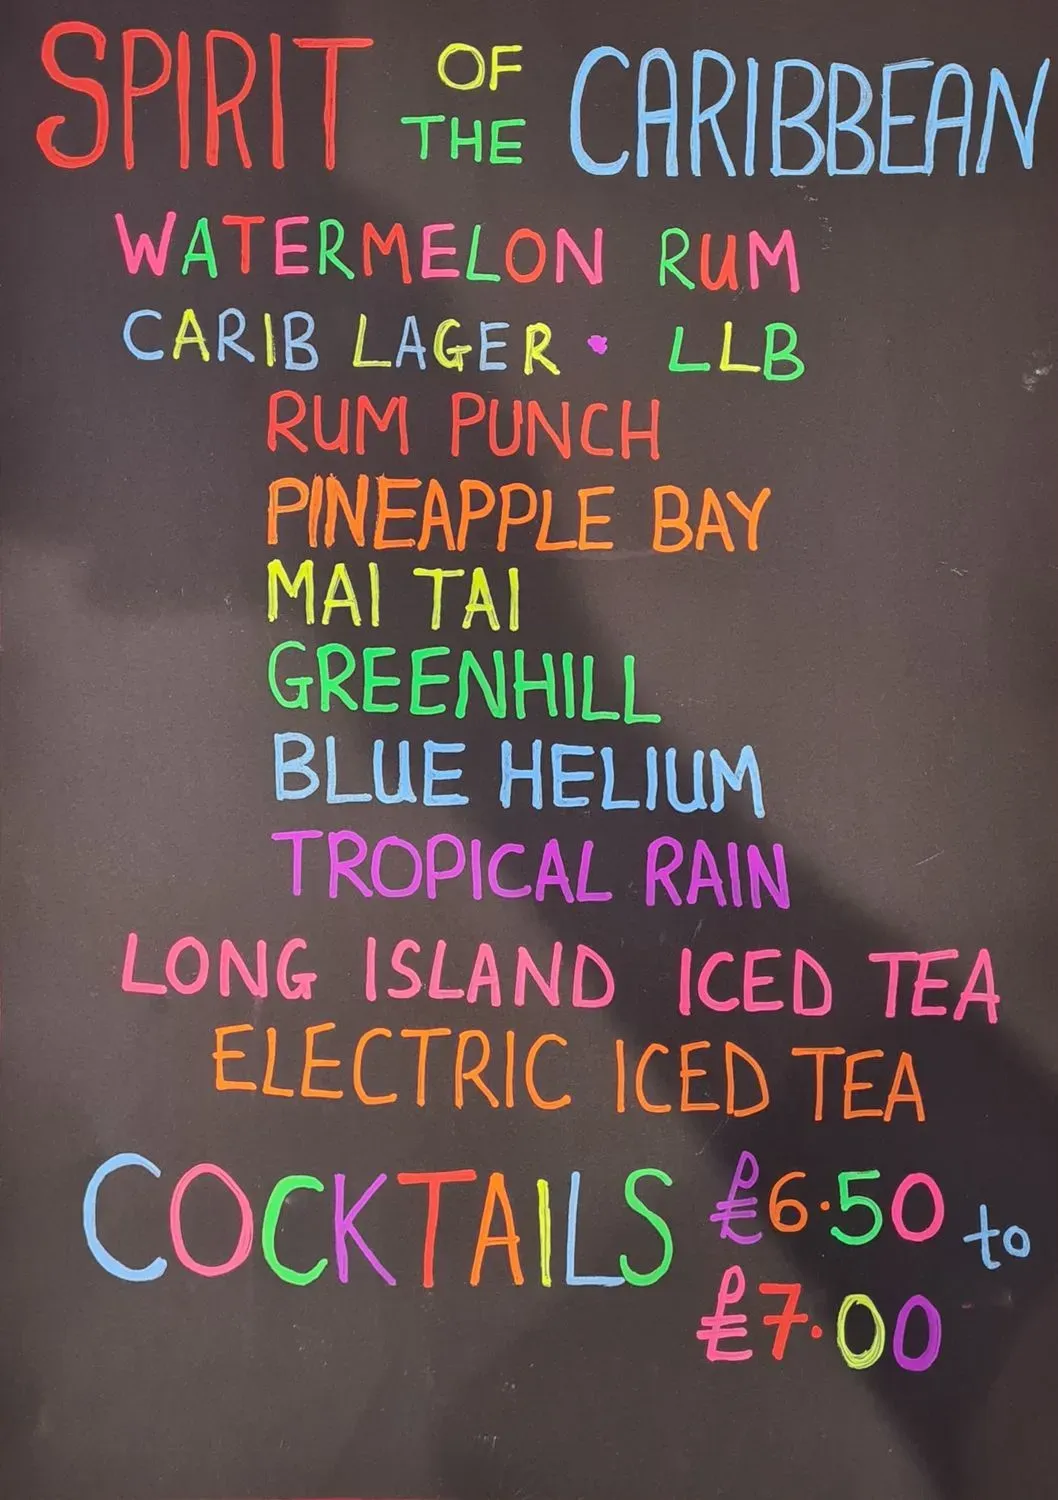 SPIRIT OF THE CARIBBEAN
WATERMELON RUM
CARIB LAGER • LLB
RUM PUNCH
PINEAPPLE BAY
MAI TAI
GREENHILL
BLUE HELIUM
TROPICAL RAIN
LONG ISLAND ICED TEA
ELECTRIC ICED TEA
COCKTAILS £6.50 to
£7.00